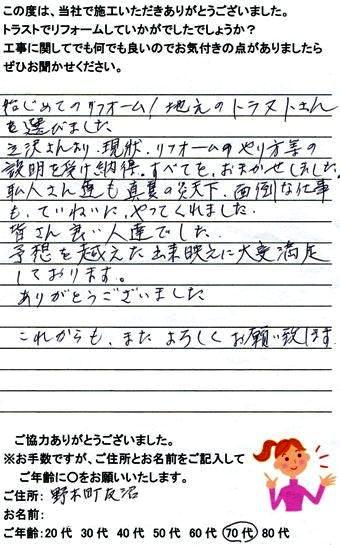 この度は、当社で施工いただきありがとうございました。
トラストでリフォームしていかがでしたでしょうか？
工事に関してでも何でも良いのでお気付きの点がありましたら
ぜひお聞かせください。
始じめてのリフォーム！地元のトラストさん
を選びました
立沢さんより、現状、リフォームのやり方等の
説明を受け納得。すべてを、おまかせしました。
職人さん達も真夏の炎天下、面倒な仕事
も、ていねいに、やってくれました。
皆さん良い人達でした。
予想を越えた出来映えに大変満足
しております。
ありがとうございました
これからも、また よろしく お願い致します。
ご協力ありがとうございました。
※お手数ですが、ご住所とお名前をご記入して
ご年齢に〇をお願いいたします。
ご住所: 野木町友沼
お名前:
ご年齢:20代 30代 40代 50代 60代 70代 80代